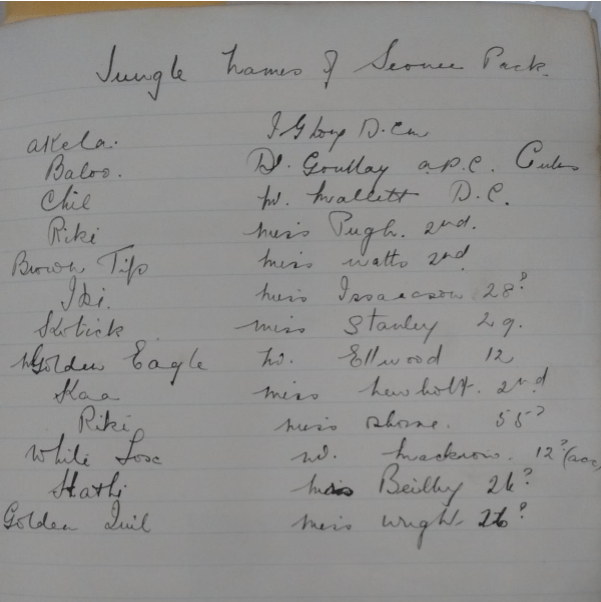 Jungle Names of Seonee Pack.
Akela. D.C.M
Baloo. Dr. Goullay A.P.C. Cubs
Chil W. Mallett D.C.
Riki Miss Pugh. 2nd.
Brown Tip Miss Watts 2nd
Iki. Miss Issacson 28?
Kotick Miss Stanley 29.
Golden Eagle W. Ellwood 12
Kaa Miss Newholt. 2nd
Riki Miss Shorne. 55?
White W. Mackrow. 12? (acc)
Hathi Miss Beilby 26?
Golden Quil Miss Wright 26?